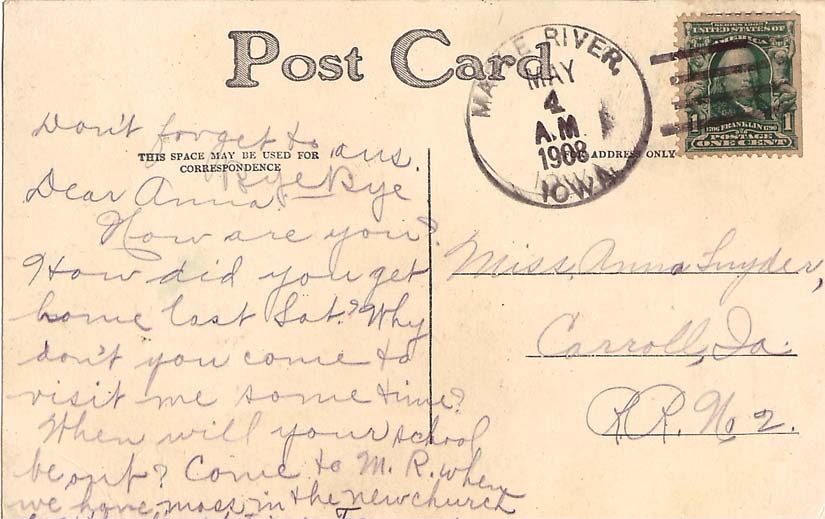 Post Card
MAPLE RIVER,
MAY
4
A.M.
1908
IOWA
SERIES 1902
UNITED STATES OF
AMERICA
1 1
1706 FRANKLIN 1790
POSTAGE
ONE CENT
Don't forget to ans.
Bye Bye
THIS SPACE MAY BE USED FOR
CORRESPONDENCE
ADDRESS ONLY
Dear Anna.
How are you?
How did you get
home last Sat.? Why
don't you come to
visit me sometime?
When will your school
be out? Come to M. R. when
we have mass in the new church
Miss, Anna Snyder,
Carroll, Ia.
RR. No 2.